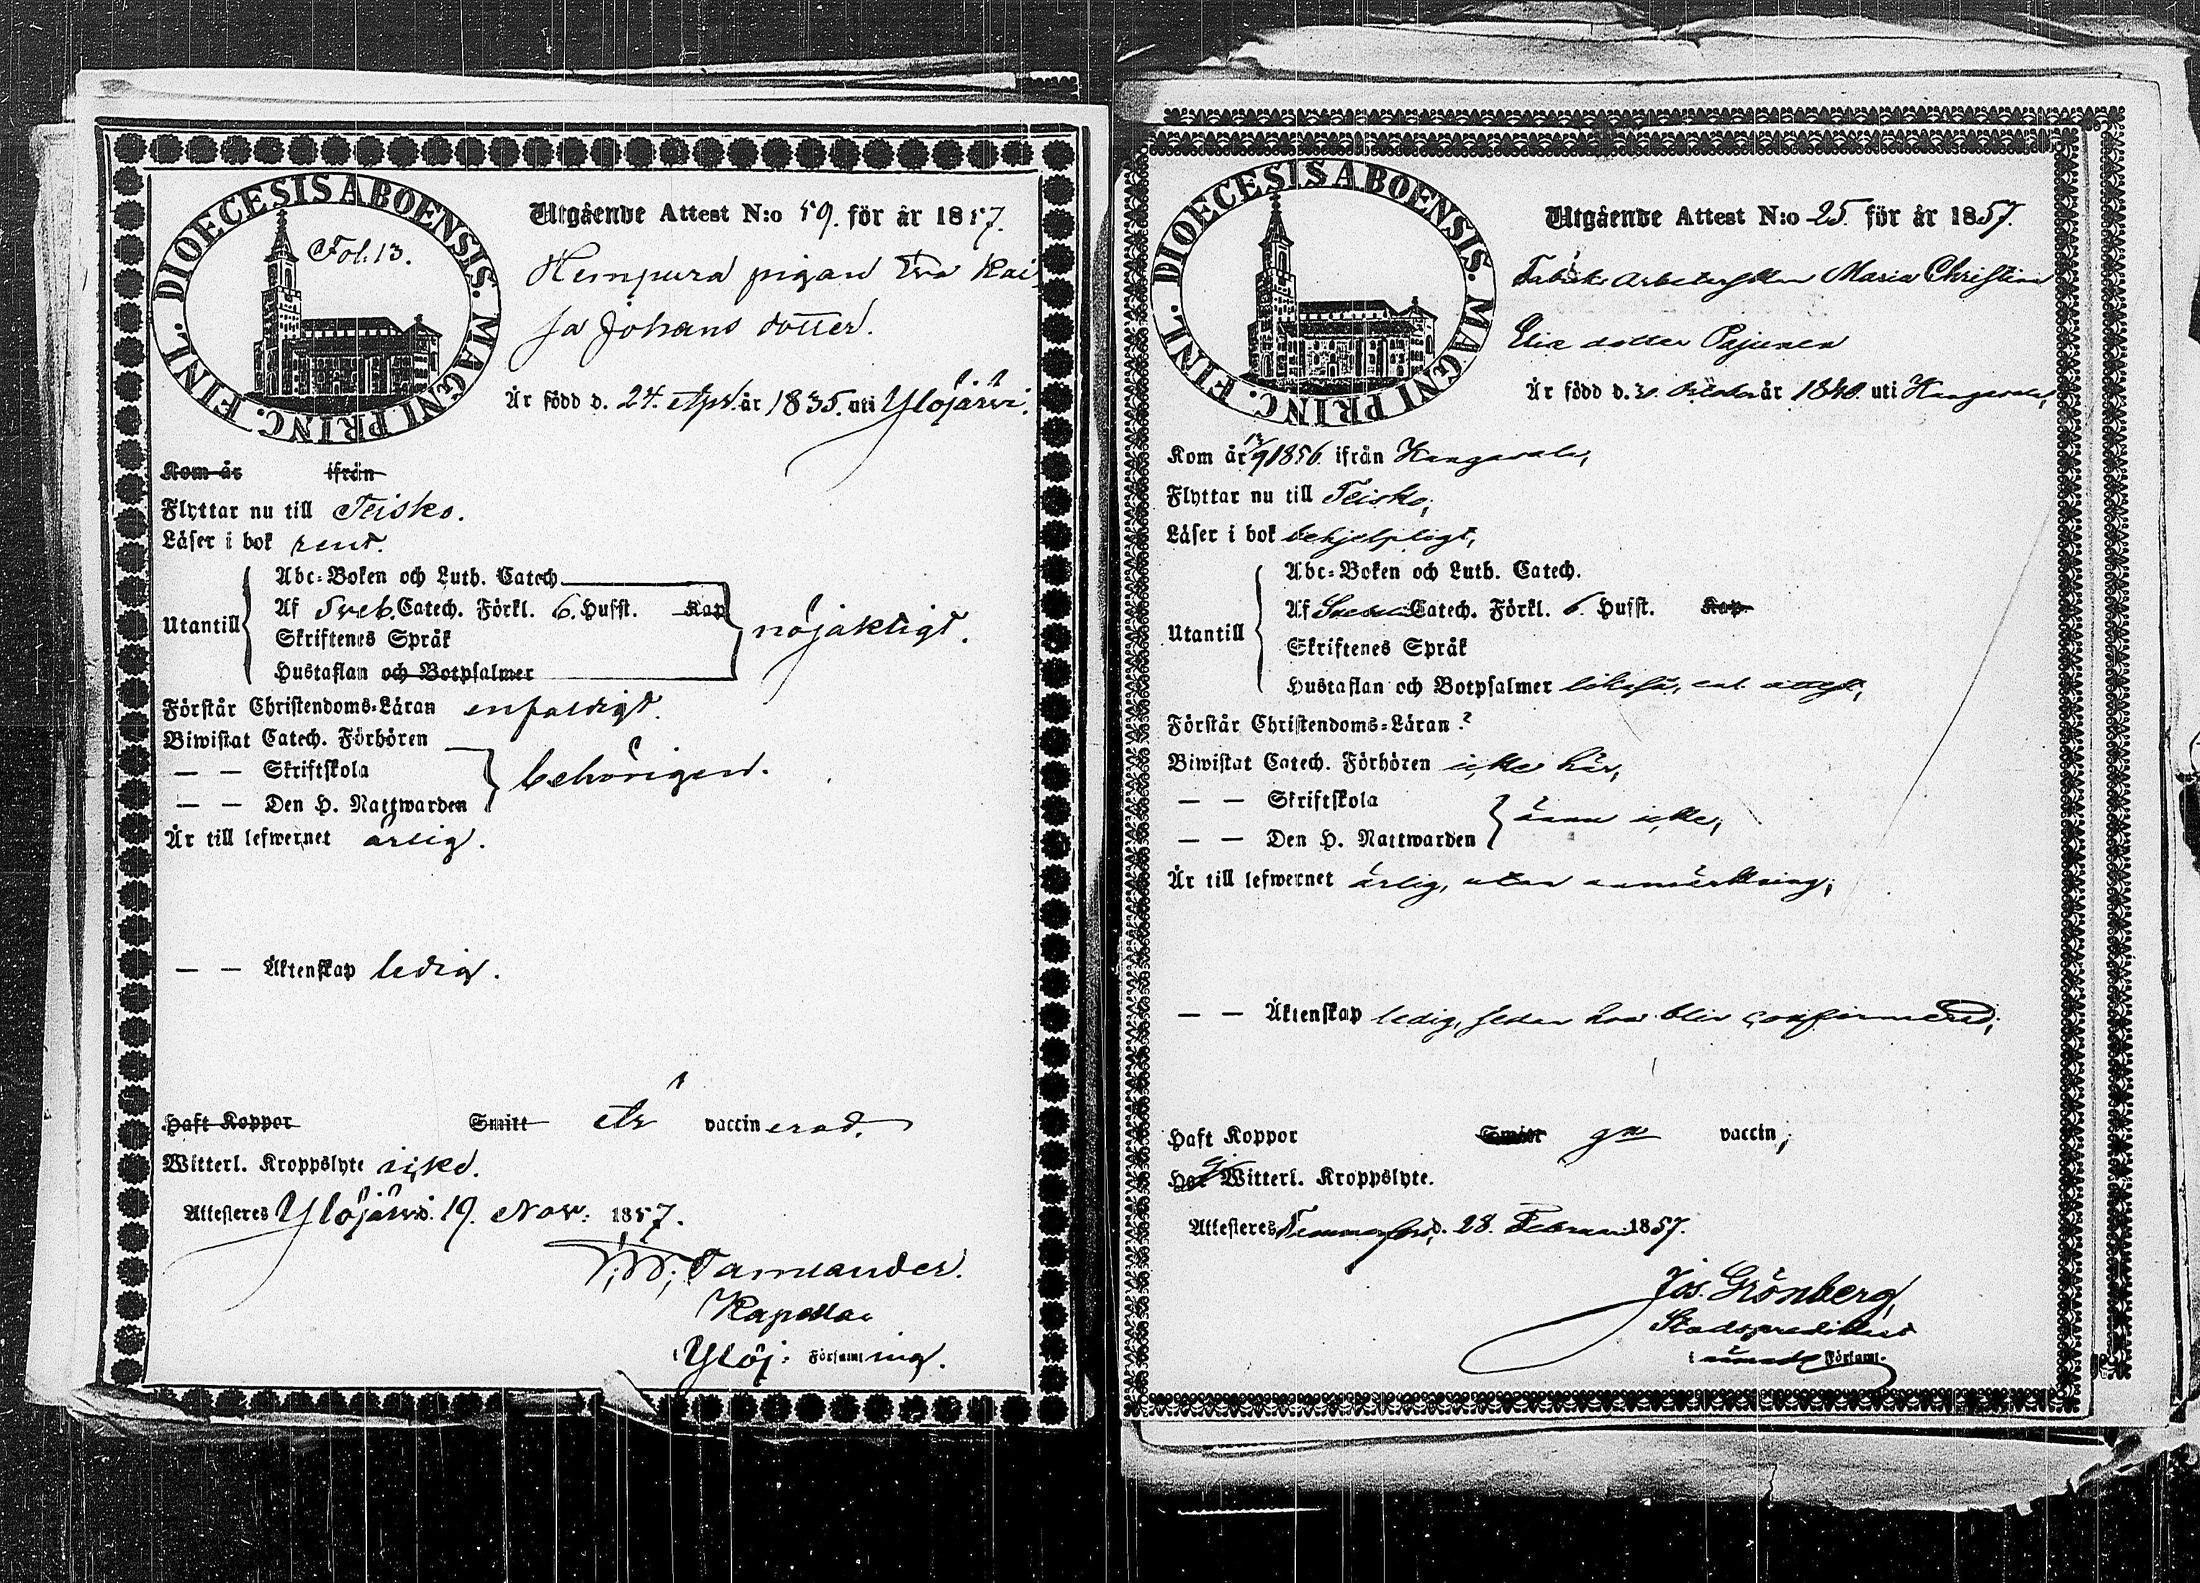 DIOECESIS ABOENSIS. MAGNI PRINC. FINL.
Fol. 13.
Utgående Attest N:o 59. för år 1857.
Hempura pigan Eva Kai
sa Johans dotter.
Är född d. 24. Apr. år 1835. uti Ylöjärvi.
Kom år ifrån
Flyttar nu till Teisko.
Läser i bok rent.
Utantill
Abc-Boken och Luth. Catech.
Af Sveb. Catech. Förkl. 6. Hufst. Kap
Skriftenes Språk
Hustaflan och Botpsalmer
nöjaktigt.
Förstår Christendoms-Läran enfaldigt.
Biwistat Catech. Förhören
— — Skriftskola
— — Den H. Nattwarden
behörigen.
Är till lefwernet ärlig.
— — Äktenskap ledig.
Haft Koppor Smitt Är vaccinerad.
Witterl. Kroppslyte icke.
Attesteres Ylöjärvi d. 19. Nov: 1857.
Tamlander.
Kapellan
i Ylöj: Församling.
DIOECESIS ABOENSIS. MAGNI PRINC. FINL.
Utgående Attest N:o 25. för år 1857.
Fabriks Maria Christina
dotter Pajunen
Är född d. år 1840. uti Kangasala,
Kom år 13/9 1856. ifrån Kangasala,
Flyttar nu till Teisko,
Läser i bok behjelpligt,
Utantill
Abc-Boken och Luth. Catech.
Af Catech. Förkl. 6. Hufst. Kap.
Skriftenes Språk
Hustaflan och Botpsalmer likaså, enl. attest,
Förstår Christendoms-Läran ?
Biwistat Catech. Förhören icke här,
— — Skriftskola
— — Den H. Nattwarden
ännu icke,
Är till lefwernet ärlig, utan anmärkning,
— — Äktenskap ledig, sedan hon blir confirmerad,
Haft Koppor Smitt gm vaccin,
Har ej Witterl. Kroppslyte.
Attesteres Tammerfors, d. 28. Februari 1857.
Jos. Grönberg,
Stadspredikant
i Församl.